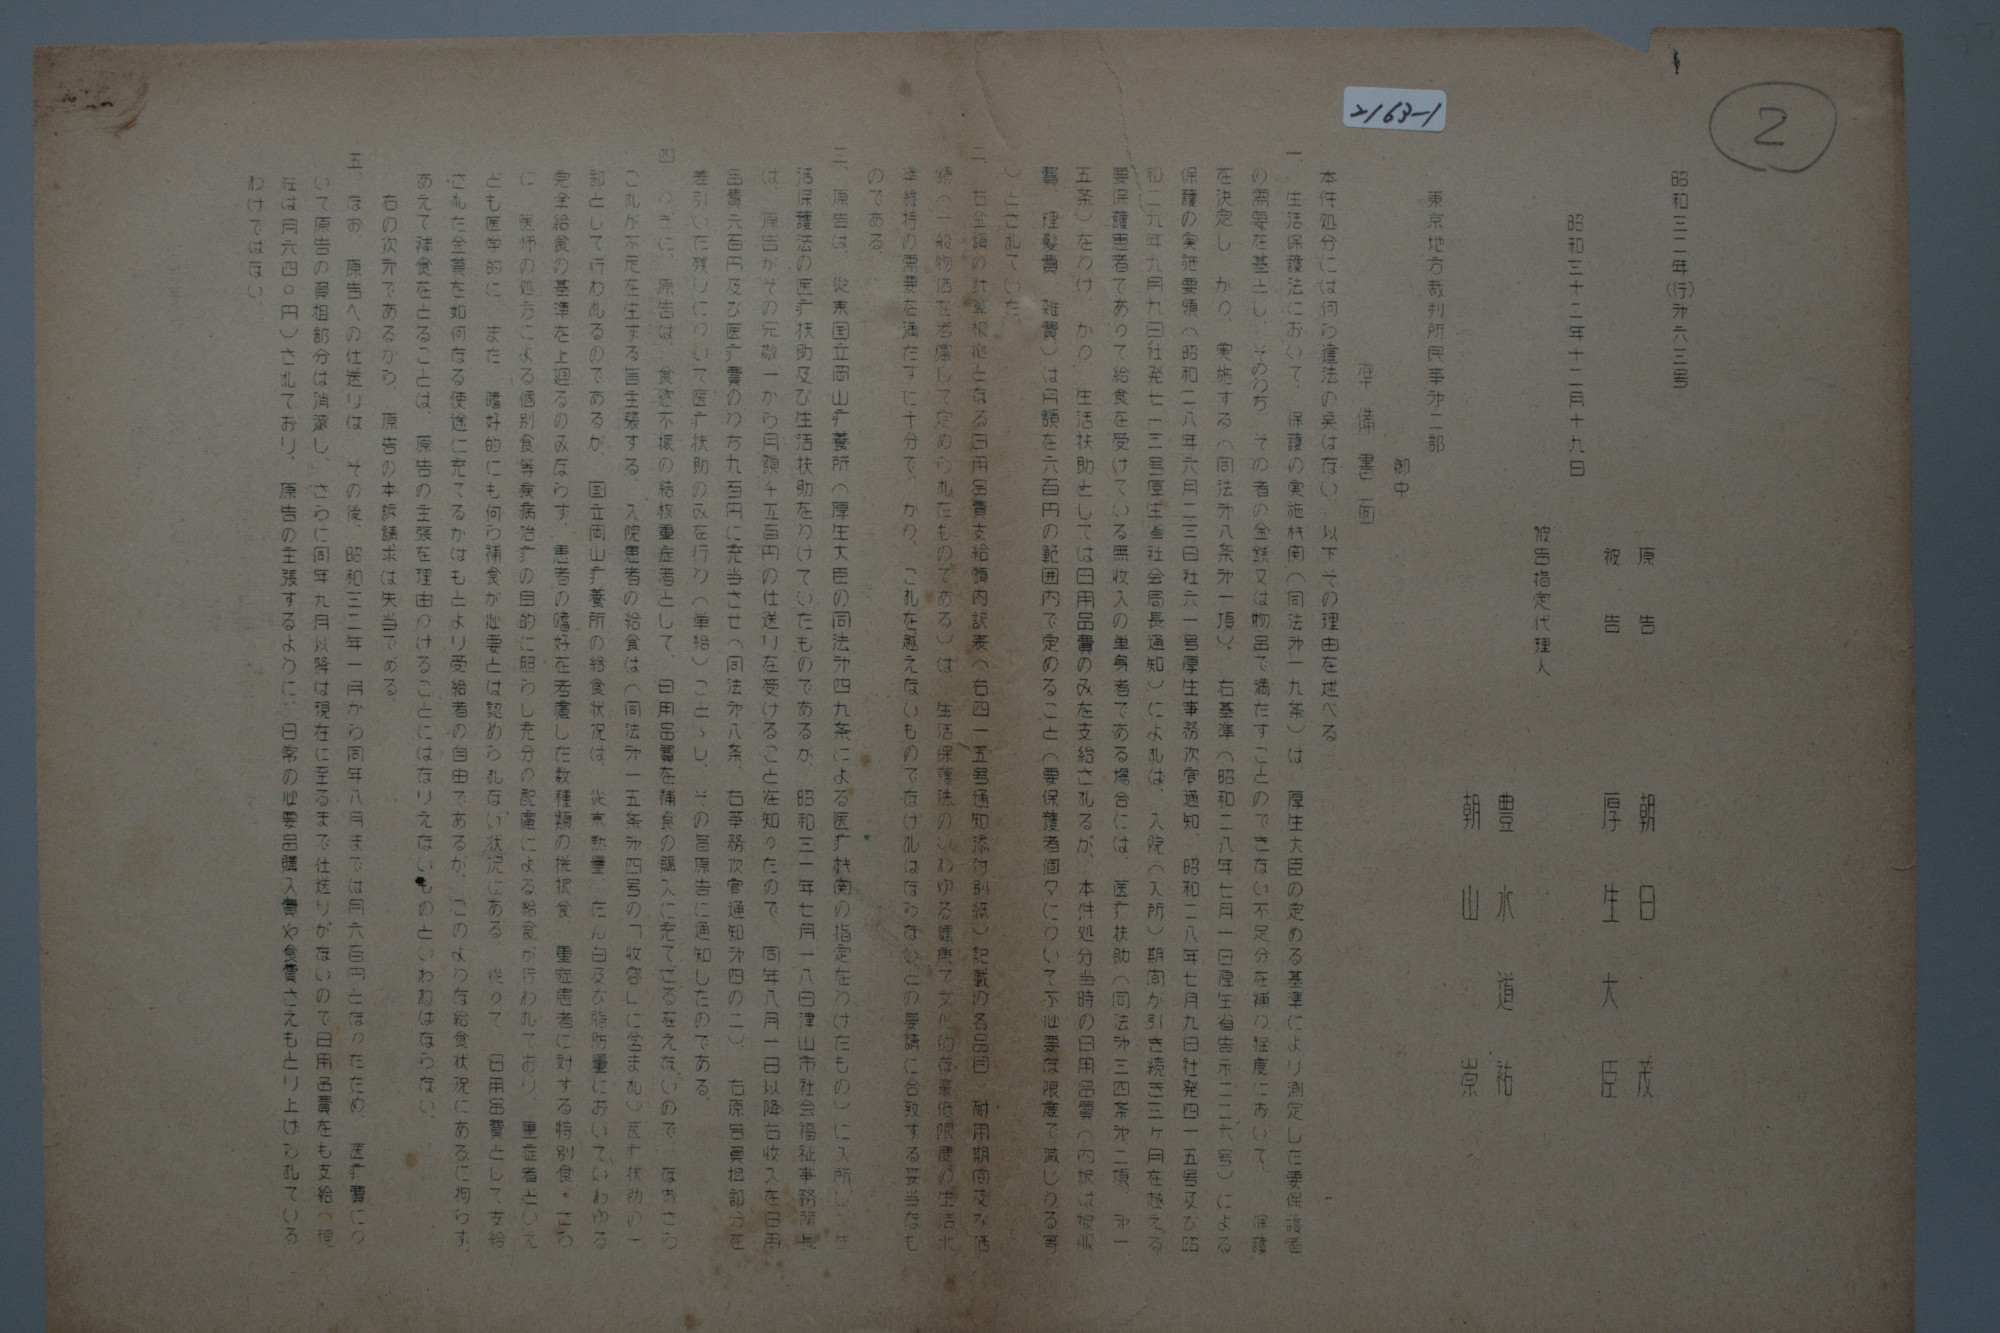 2
2163-1
昭和三二年(行)才六三号
原告 朝日茂
被告 厚生大臣
昭和三十二年十二月十九日
被告指定代理人
豊水道祐
朝山崇
東京地方裁判所民事才二部
御中
準備書面
本件処分には何ら違法の点はない、以下その理由を述べる
一 生活保護法において、保護の実施機関(同法才一九条)は、厚生大臣の定める基準により測定した要保護者
の需要を基とし、そのうち、その者の金銭又は物品で満たすことのできない不足分を補う程度において、保護
を決定し、かつ、実施する(同法才八条才一項)、右基準(昭和二八年七月一日厚生省告示二二六号)による
保護の実施要領(昭和二八年六月二三日社六一号厚生事務次官通知、昭和二八年七月九日社発四一五号及び昭
和二九年九月九日社発七一三号厚生省社会局長通知)によれば、入院(入所)期間が引き続き三ヶ月を越える
要保護患者であつて給食を受けている無収入の単身者である場合には、医疗扶助(同法才三四条才二項、才一
五条)をうけ、かつ、生活扶助としては日用品費のみを支給されるが、本件処分当時の日用品費(内訳は被服
費、理髪費、雑費)は月額を六百円の範囲内で定めること(要保護者個々について不必要な限度で減じうる等
)とされていた。
二 右金額の計算根拠となる日用品費支給額内訳表(右四一五号通知添付別紙)記載の各品目、耐用期間及び価
額(一般物価を考慮して定められたものである)は、生活保護法のいわゆる健康で文化的な最低限度の生活水
準維持の需要を満たすに十分で、かつ、これを越えないものでなければならないとの要請に合致する妥当なも
のである
三、原告は、従来国立岡山疗養所(厚生大臣の同法才四九条による医疗機関の指定をうけたもの)に入所し、生
活保護法の医疗扶助及び生活扶助をうけていたものであるが、昭和三一年七月一八日津山市社会福祉事務所長
は、原告がその兄敬一から月額千五百円の仕送りを受けることを知つたので、同年八月一日以降右収入を日用
品費六百円及び医疗費のうち九百円に充当させ(同法才八条、右事務次官通知才四の二)、右原告負担部分を
差引いた残りについて医疗扶助のみを行う(単給)こととし、その旨原告に通知したのである。
四 つぎに、原告は、食慾不振の結核重症者として、日用品費を補食の購入に充てざるをえないので、なおさら
これが不足を生する旨主張する、入院患者の給食は(同法才一五条才四号の「収容」に含まれ)医疗扶助の一
部として行われるのであるが、国立岡山疗養所の給食状況は、従来熱量、たん白及び脂肪量においていわゆる
完全給食の基準を上廻るのみならず、患者の嗜好を考慮した数種類の撰択食、重症患者に対する特別食、さら
に、医師の処方による個別食等疾病治疗の目的に照らし充分の配慮による給食が行われており、重症者といえ
ども医学的に、また、嗜好的にも何ら補食が必要とは認められない状況にある、従つて、日用品費として支給
された金員を如何なる使途に充てるかはもとより受給者の自由であるが、このような給食状況にあるに拘らず、
あえて補食をとることは、原告の主張を理由つけることにはなりえないものといわねばならない、
右の次才であるから、原告の本訴請求は失当である
五、なお、原告への仕送りは、その後、昭和三二年一月から同年八月までは月六百円となつたため、医疗費につ
いて原告の負担部分は消滅し、さらに同年九月以降は現在に至るまで仕送りがないので日用品費をも支給(現
在は月六四〇円)されており、原告の主張するように、日常の必要品購入費や食費さえもとり上げられている
わけではない、